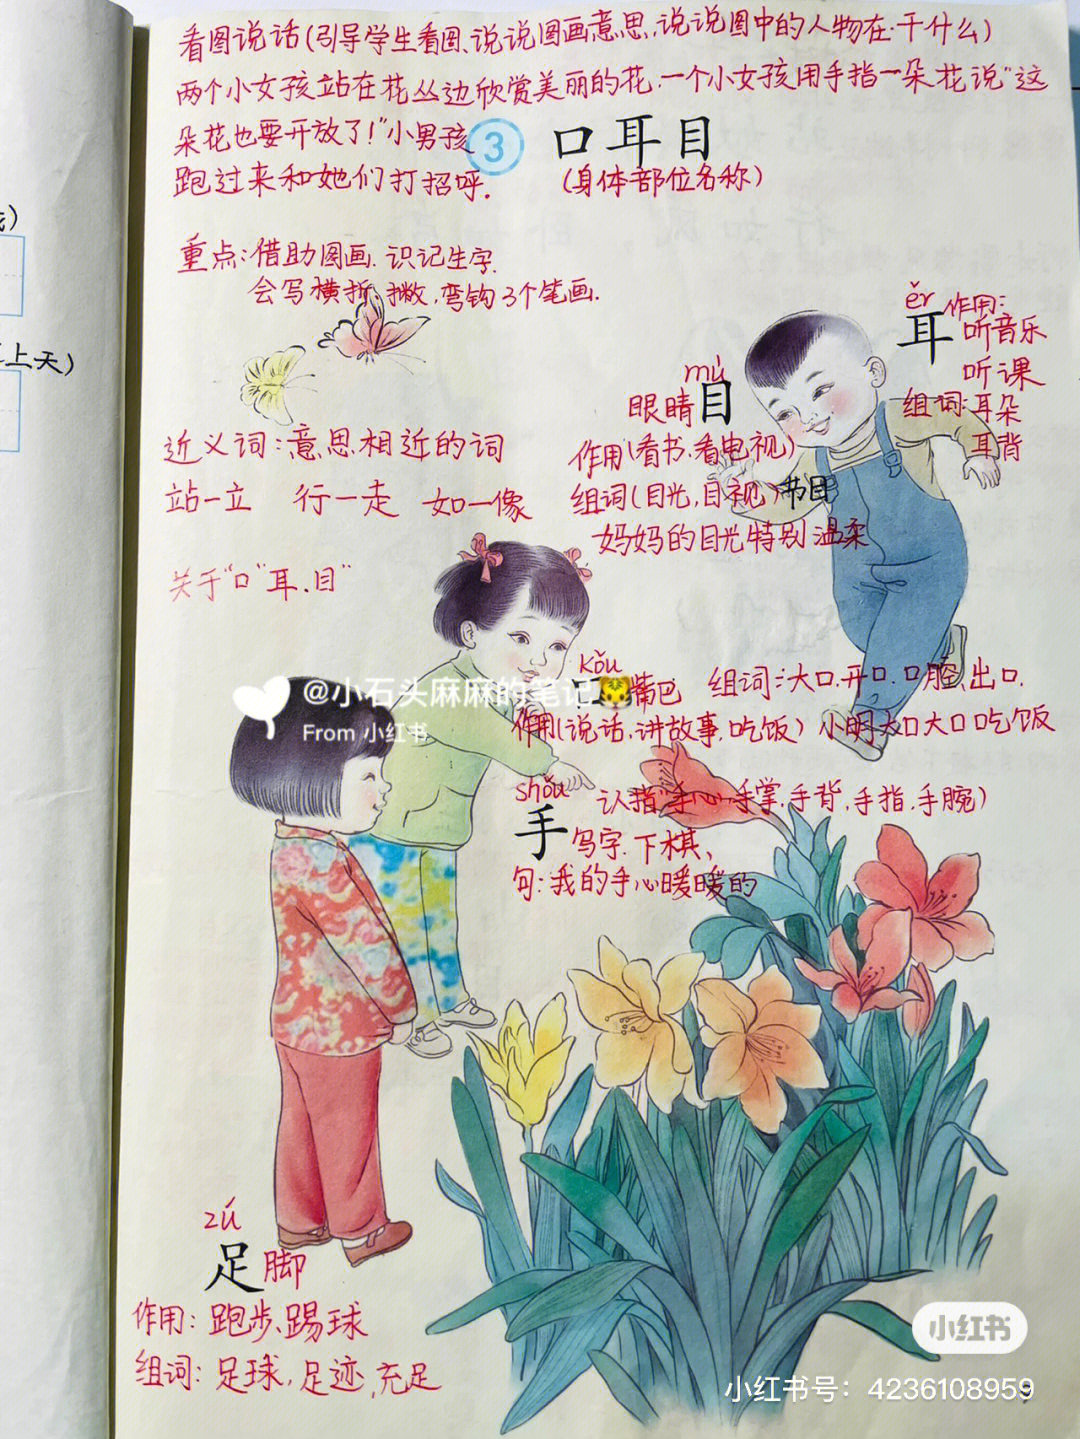 看图说话(引导学生看图、说说图画意思,说说图中的人物在干什么)
两个小女孩站在花丛边欣赏美丽的花.一个小女孩用手指一朵花说"这
朵花也要开放了!"小男孩
跑过来和她们打招呼.
3 口耳目
(身体部位名称)
重点:借助图画.识记生字.
会写横折,撇,弯钩3个笔画.
上天)
ěr
耳 作用:
听音乐
听课
组词:耳朵
耳背
mú
眼睛目
作用(看书.看电视)
组词(目光,目视)节目
妈妈的目光特别温柔
近义词:意思相近的词
站一立 行一走 如一像
关于"口"耳.目"
kǒu
嘴巴 组词:大口.开口.口腔.出口.
作用(说话.讲故事.吃饭) 小明大口大口吃饭
@小石头麻麻的笔记🐯
From 小红书
shǒu
手 认指"手心.手掌,手背,手指.手腕)
写字.下棋、
句:我的手心暖暖的
zú
足 脚
作用: 跑步、踢球
组词: 足球,足迹,充足
小红书
小红书号: 4236108959